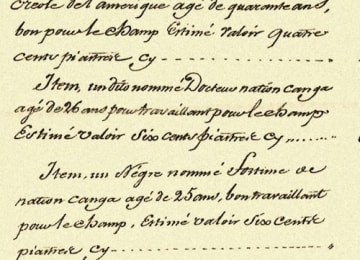 Creole de l'amerique agé de quarante ans,
bon pour le champ Estimé valoir quatre
cents piastres, cy
Item, un dito nommé Docteur nation canga
agé de 26 ans pour travaillant pour le champ
Estimé valoir Six cents piastres cy
Item, un Négre nommé fortune de
nation canga agé de 25 ans, bon travaillant
pour le champ, Estimé valoir Six Cents
piastres, cy